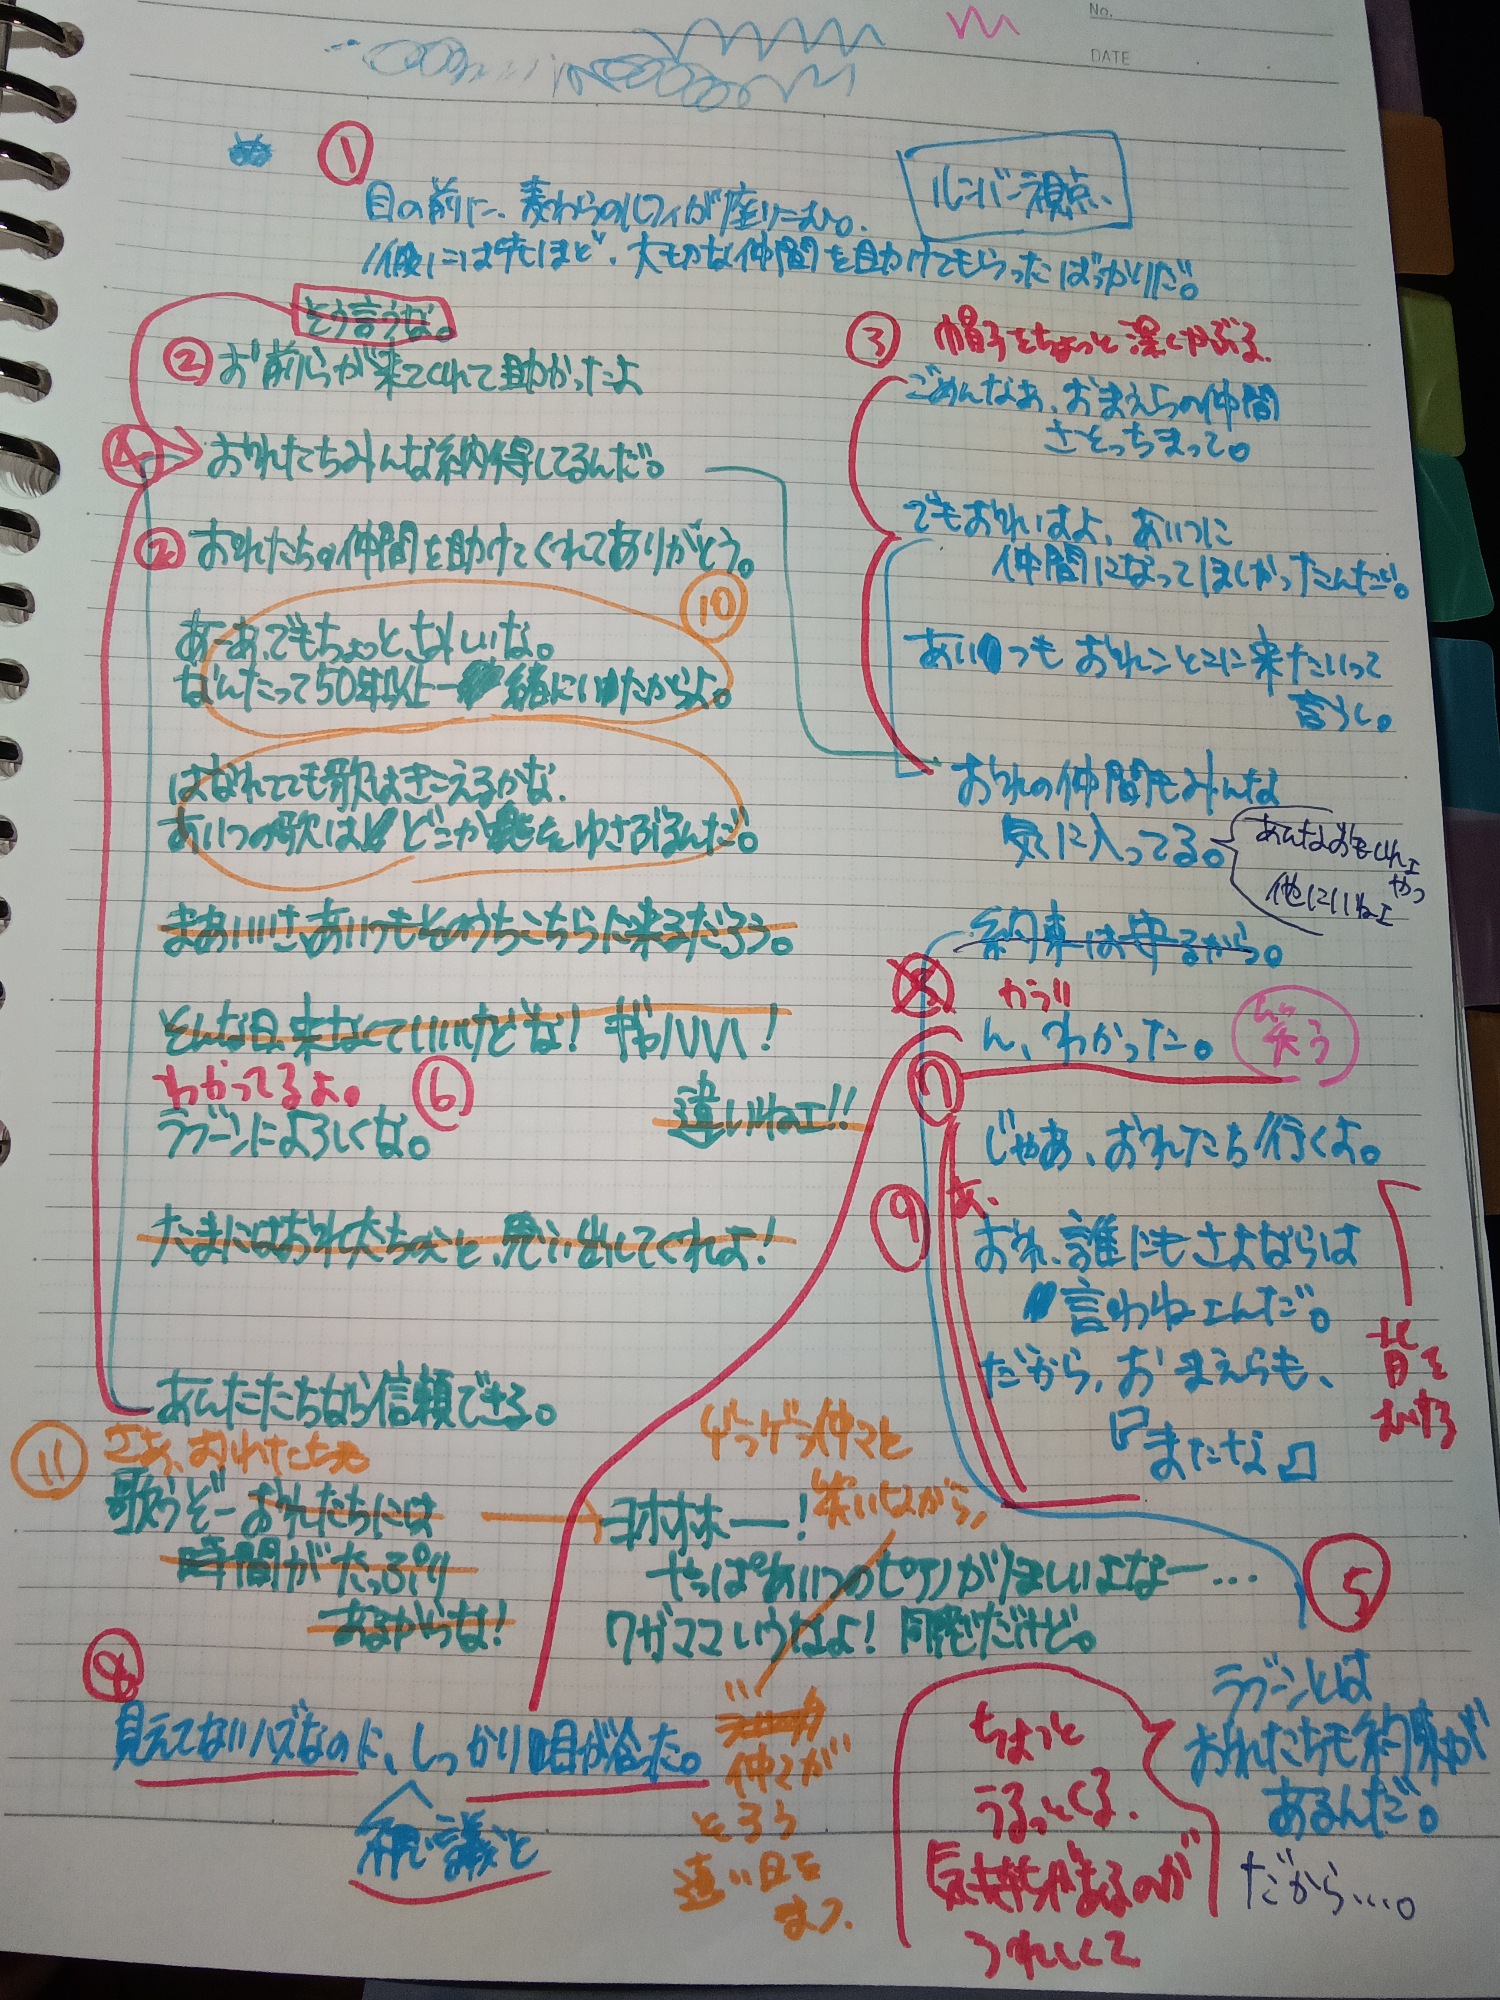 No.
DATE
①
ルンバー視点、
目の前に、麦わらのルフィが座りこむ。
彼には先ほど、大切な仲間を助けてもらったばっかりだ。
そう言うな。
② お前らが来てくれて助かったよ
④ おれたちみんな納得してるんだ。
② おれたちの仲間を助けてくれてありがとう。
⑩
あーあ、でもちょっとさみしいな。
なんたって50年以上一緒にいたからよ。
はなれてても歌はきこえるかな。
あいつの歌はどこか魂をゆさぶるんだ。
まあいいさ、あいつもそのうちこちらに来るだろう。
そんな日、来なくていいけどな! ギャハハハ!
わかってるよ。 ⑥
違いねェ!!
ラブーンによろしくな。
たまにはおれたちのこと、思い出してくれよ!
あんたたちなら信頼できる。
③ 帽子をちょっと深くかぶる。
ごめんなぁ、おまえらの仲間
さそっちまって。
でもおれはよ、あいつに
仲間になってほしかったんだ。
あいつもおれんとこに来たいって
言うし。
おれの仲間もみんな
気に入ってる。
あんなおもしれェ
やつ
他にいねェ
約束は守るから。
からり
ん、わかった。
笑う
⑦
じゃあ、おれたち行くよ。
⑨ あ、
おれ、誰にもさよならは
言わねェんだ。
だから、おまえらも、
『またな』
背を
むける
⑪ さあ、おれたちも
歌うぞー おれたちには
時間がたっぷり
あるからな!
ゲラゲラ仲マと
笑いながら、
ヨホホホー!
やっぱあいつのピアノがほしいよなー…
ワガママいうなよ! 同感だけど。
⑤
ラブーンとは
おれたちも約束が
あるんだ。
だから…。
ちょっと
うるっとくる。
気持ちが
うれしくて
⑧
見えてないハズなのに、しっかり目が合った。
不思議と
仲マが
とろう
遠い目を
まつ、